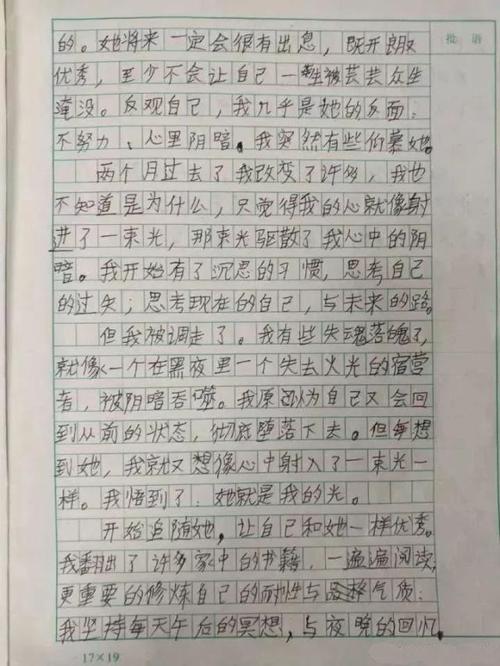 批语
的。她将来一定会很有出息，既开朗又
优秀，至少不会让自己一生被芸芸众生
淹没。反观自己，我几乎是她的反面：
不努力、心里阴暗。我突然有些伯慕她。
两个月过去了我改变了许多，我也
不知道是为什么，只觉得我的心就像射
进了一束光，那束光驱散了我心中的阴
暗。我开始有了沉思的习惯，思考自己
的过失；思考现在的自己，与未来的路。
但我被调走了。我有些失魂落魄了，
就像一个在黑夜里一个失去火光的宿营
者，被阴暗吞噬。我原以为自己又会回
到从前的状态，彻底堕落下去。但每想
到她，我就又想像心中射入了一束光一
样。我悟到了：她就是我的光。
开始追随她，让自己和她一样优秀。
我翻出了许多家中的书籍，一遍遍阅读，
更重要的修炼自己的耐性与气质：
我坚持每天午后的冥想，与夜晚的回忆。
17×19